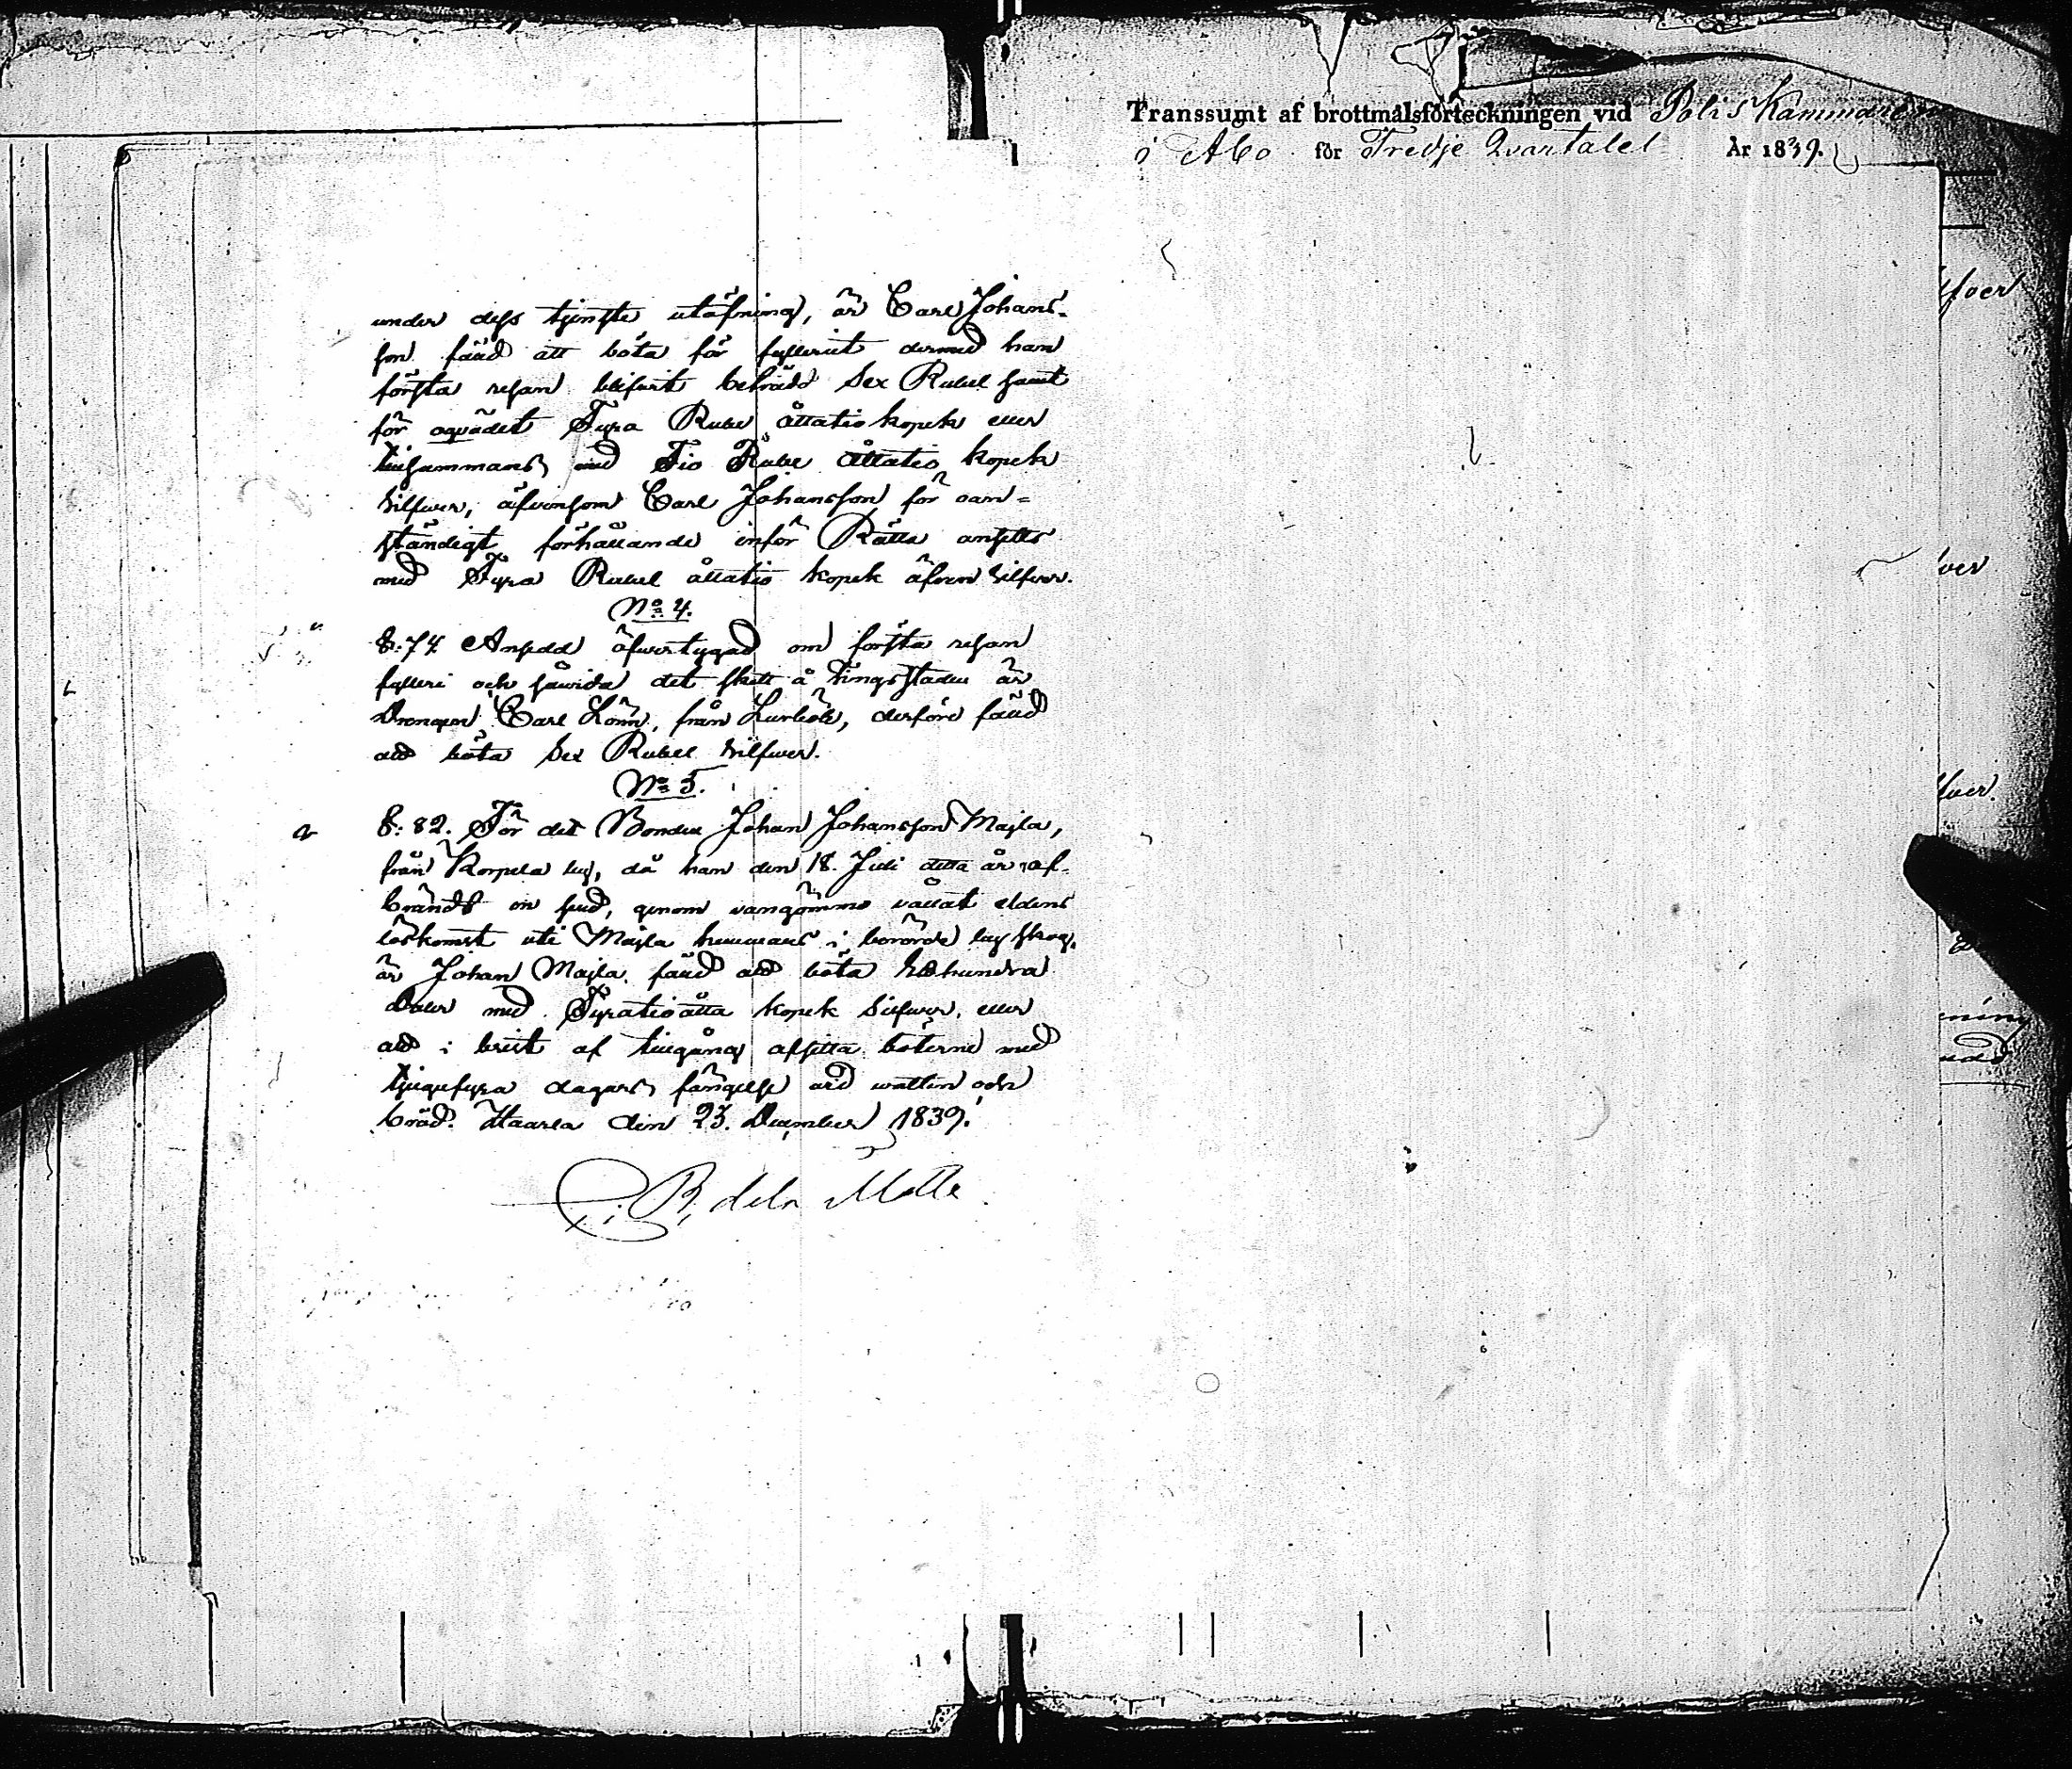 under dess tjenste utöfning, är Carl Johans-
son fälld att böta för fylleriet dermed han
första resan blifwit beträdd Sex Rubel samt
för oqvädet Fyra Rubel åttatio kopek eller
tillsammans med Tio Rubel åttatio kopek
Silfwer, äfvensom Carl Johansson för oan-
ständigt förhållande inför Rätta ansetts
med Fyra Rubel åttatio kopek äfven Silfwer.
No 4.
§: 74 öfwertygad om första resan
fylleri och såvida det skett å Tingsstaden är
Drengen Carl Lönn, från derföre fälld
att böta Sex Rubel Silfwer.
No 5.
§: 82. För det Bonden Johan Johansson Majla,
från Korpela by, då han den 18. Juli detta år af-
brändt en sved, genom vangömmo vållat eldens
löskomst uti Majla hemmans i berörde by skog,
är Johan Majla fälld att böta
Daler med Fyratioåtta kopek Silfwer, eller
att i brist af tillgång afsitta böterne med
tjugufyra dagars fängelse wid watten och
bröd. Haarla den 23. December 1839.
B, de la Motte
Transsumt af brottmålsförteckningen vid Polis Kammaren
i Åbo för Tredje Qvartalet År 1839.